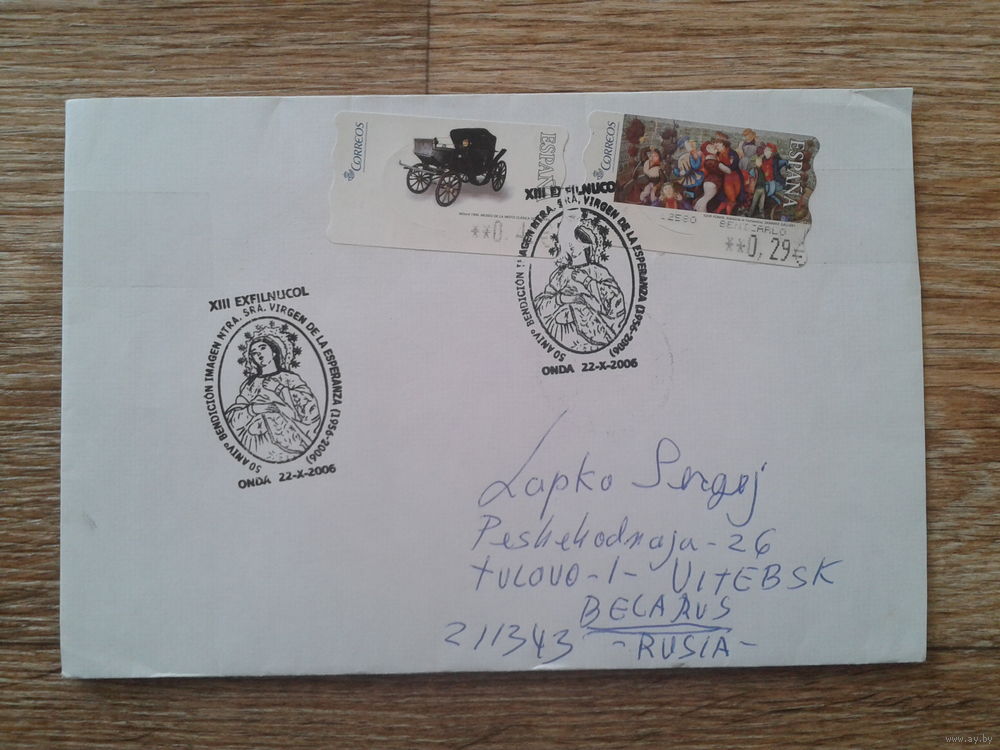 CORREOS
ESPAÑA
**0,4
CORREOS
ESPAÑA
12580 BENICARLO
**0,29€
XIII EXFILNUCOL
50 ANIVº BENDICIÓN IMAGEN NTRA. SRA. VIRGEN DE LA ESPERANZA (1956-2006)
ONDA 22-X-2006
XIII EXFILNUCO
50 ANIVº BENDICIÓN IMAGEN NTRA. SRA. VIRGEN DE LA ESPERANZA (1956-2006)
ONDA 22-X-2006
Lapko Sergej
Peshehodnaja - 26
TULOVO - 1 - VITEBSK
BELARUS
211343 - RUSIA -
www.ay.by